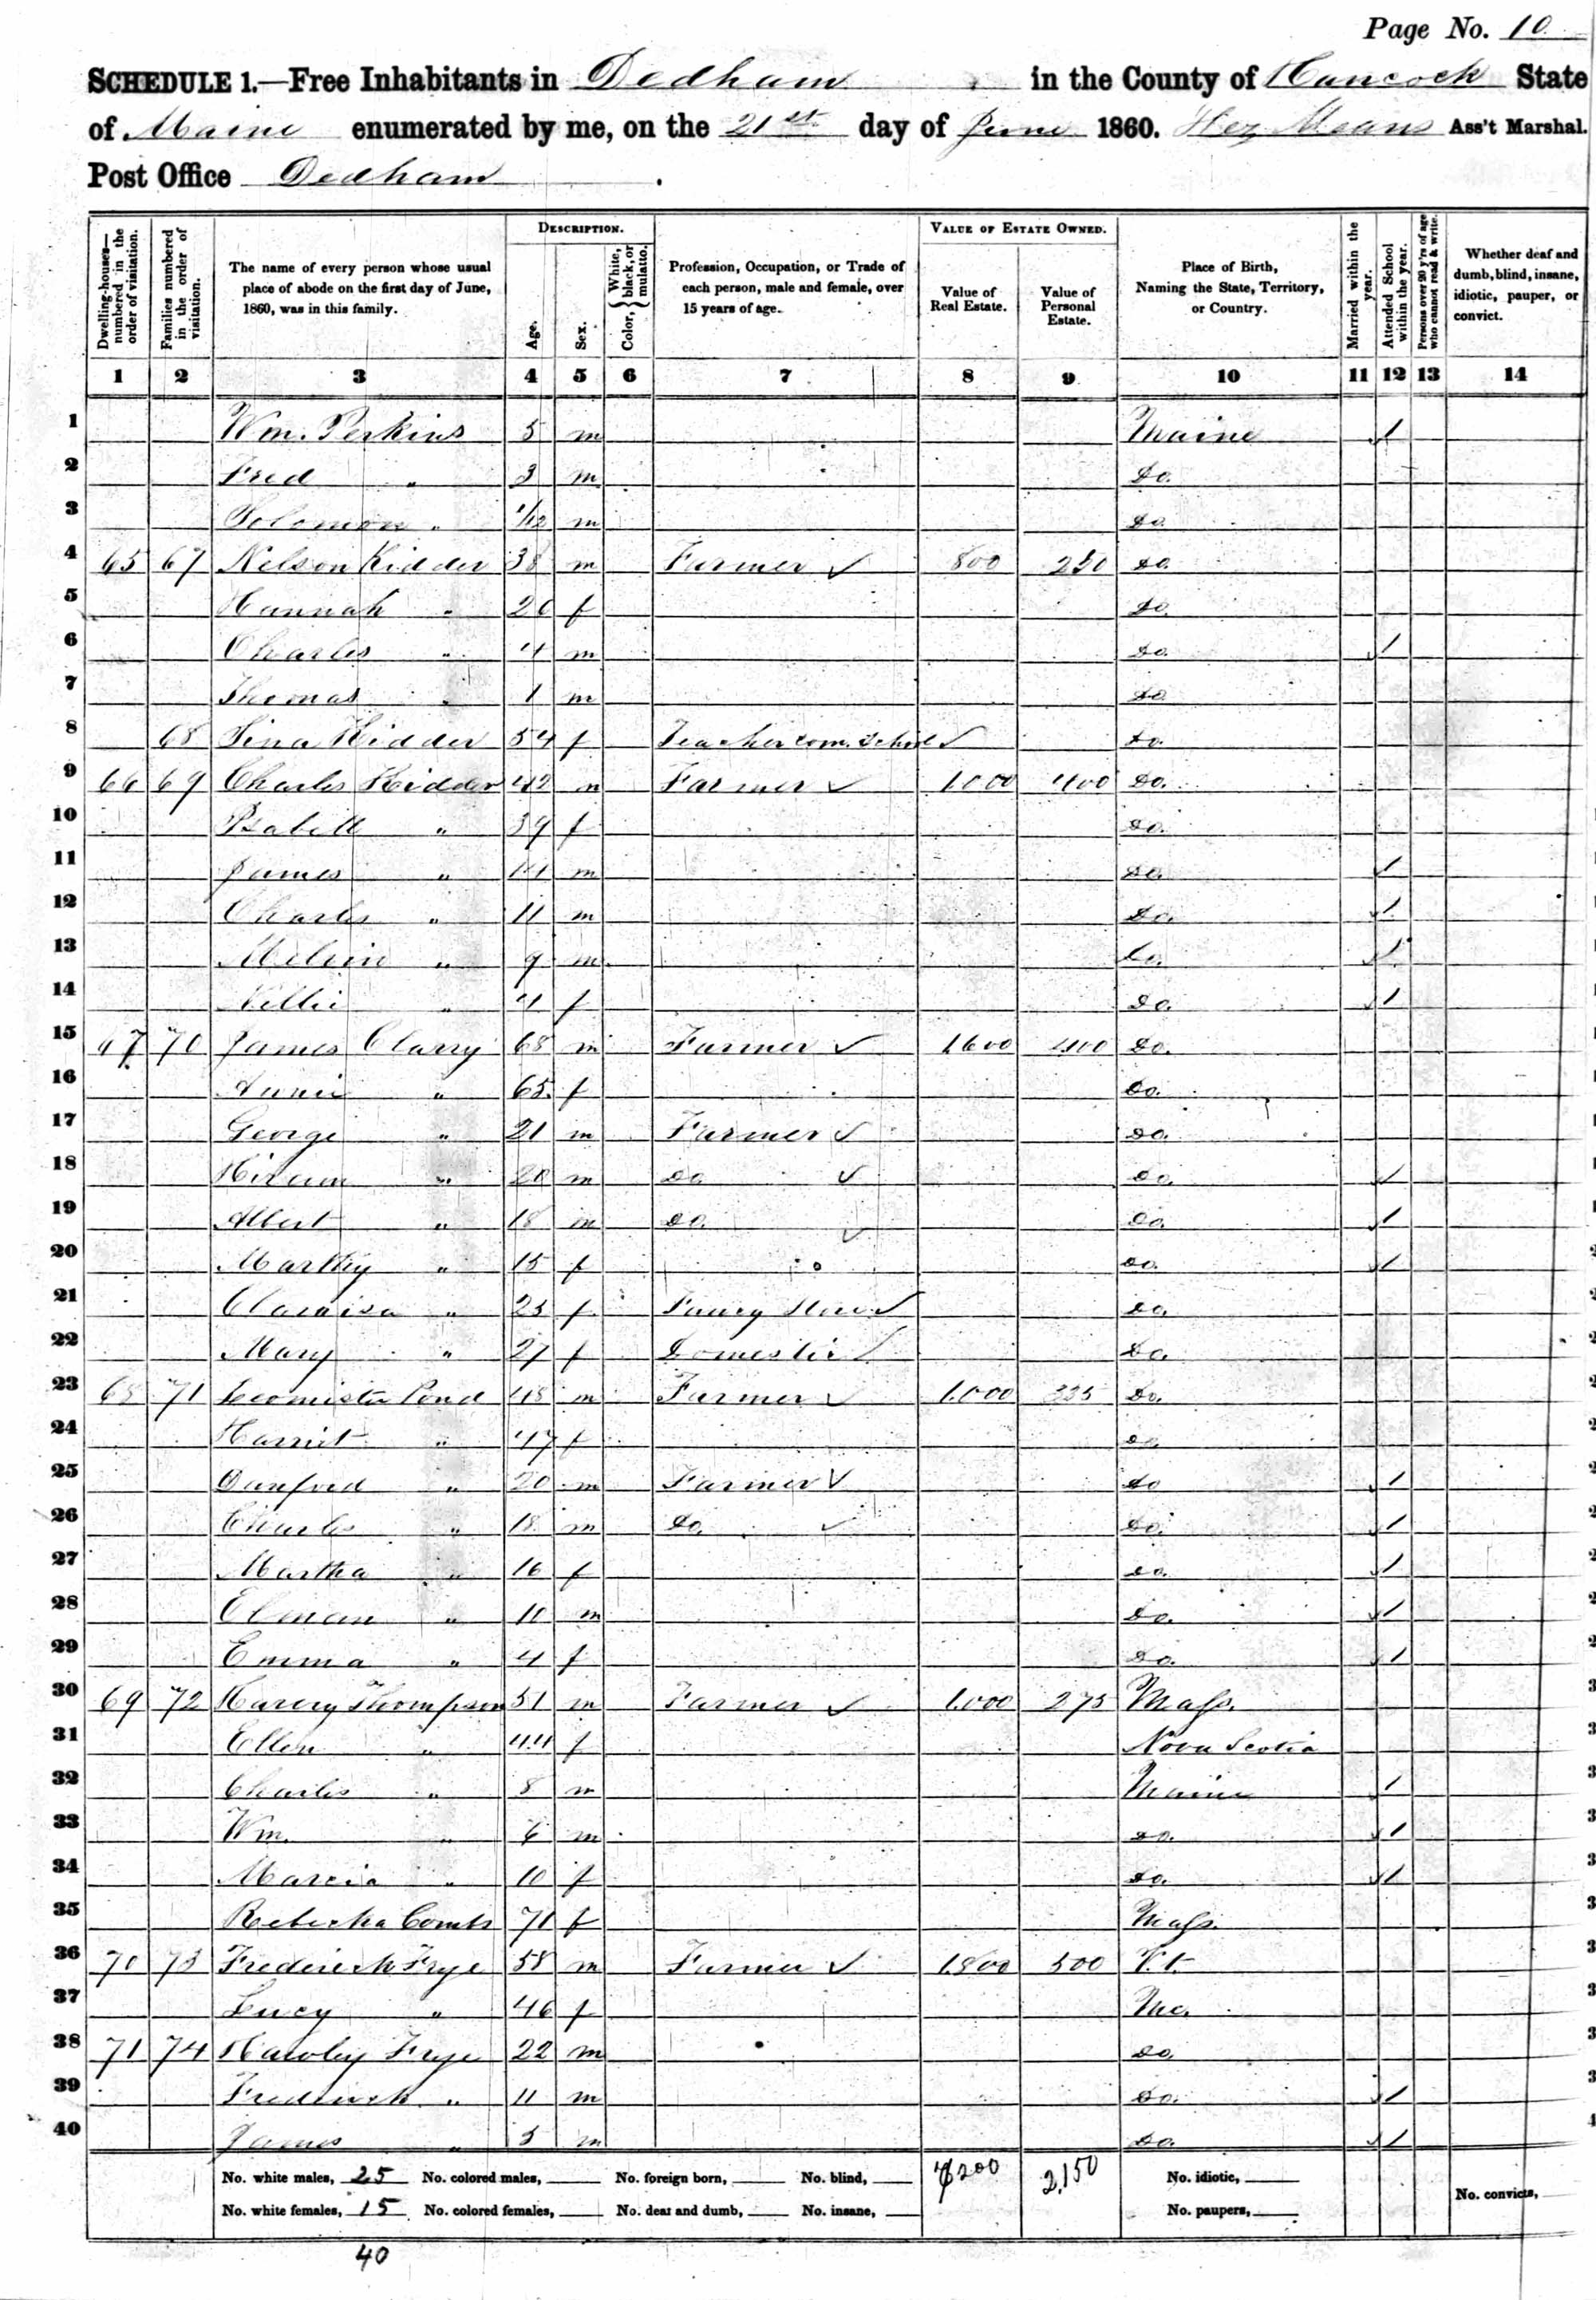 Page No. 10
SCHEDULE 1.—Free Inhabitants in Dedham in the County of Hancock State
of Maine enumerated by me, on the 21st day of June 1860. Hez Means Ass't Marshal.
Post Office Dedham.
Dwelling-houses—numbered in the order of visitation.
Families numbered in the order of visitation.
The name of every person whose usual place of abode on the first day of June, 1860, was in this family.
DESCRIPTION.
Age.
Sex.
Color, { White, black, or mulatto.
Profession, Occupation, or Trade of each person, male and female, over 15 years of age.
VALUE OF ESTATE OWNED.
Value of Real Estate.
Value of Personal Estate.
Place of Birth, Naming the State, Territory, or Country.
Married within the year.
Attended School within the year.
Persons over 20 y'rs of age who cannot read & write.
Whether deaf and dumb, blind, insane, idiotic, pauper, or convict.
1 2 3 4 5 6 7 8 9 10 11 12 13 14
1 Wm. Perkins 5 m Maine /
2 Fred " 3 m Do.
3 Solomon " 1/12 m Do.
4 65 67 Nelson Kidder 38 m Farmer ✓ 800 250 Do.
5 Hannah " 26 f Do.
6 Charles " 4 m Do. /
7 Thomas " 1 m Do.
8 68 Kidder 54 f Teacher com. School ✓ Do.
9 66 69 Charles Kidder 42 m Farmer ✓ 1,000 400 Do.
10 " 39 f Do.
11 James " 14 m Do. /
12 Charles " 11 m Do. /
13 Melvin " 9 m Do. /
14 Nellie " 4 f Do. /
15 67 70 James Clarry 68 m Farmer ✓ 1,600 400 Do.
16 Annie " 65 f Do.
17 George " 21 m Farmer ✓ Do.
18 Hiram " 20 m Do ✓ Do. /
19 Albert " 18 m Do. ✓ Do. /
20 Marthy " 15 f Do. /
21 " 25 f ✓ Do.
22 Mary " 27 f Domestic ✓ Do.
23 68 71 Pond 48 m Farmer ✓ 1,000 Do.
24 Harriet " 47 f Do.
25 Danford " 20 m Farmer ✓ Do /
26 Charles " 18 m Do. ✓ Do. /
27 Martha " 16 f Do. /
28 " 10 m Do. /
29 Emma " 4 f Do. /
30 69 72 Harvey Thompson 51 m Farmer ✓ 1,000 275 Mass.
31 Ellen " 44 f Nova Scotia
32 Charles " 8 m Maine /
33 Wm. " 6 m Do. /
34 Marcia " 10 f Do. /
35 Rebecka Combs 71 f Mass.
36 70 73 Frederick Frye 58 m Farmer ✓ 1,800 500 V.t.
37 Lucy " 46 f Me.
38 71 74 Frye 22 m Do.
39 Frederick " 11 m Do. /
40 James " 5 m Do. /
No. white males, 25 No. colored males, No. foreign born, No. blind, 7200 2,150 No. idiotic,
No. white females, 15 No. colored females, No. deaf and dumb, No. insane, No. paupers, No. convicts,
40